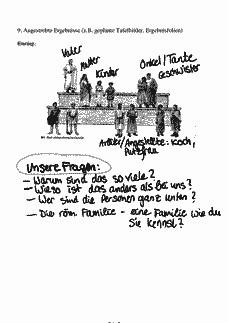 9. Angestrebte Ergebnisse (z.B. geplante Tafelbilder, Ergebnisfolien)
Einstieg:
Vater
Mutter
Kinder
Onkel/Tante
Geschwister
Ärzte/Angestellte: Koch,
Putzfrau
Unsere Fragen:
– Warum sind das so viele?
– Wieso ist das anders als bei uns?
– Wer sind die Personen ganz unten?
– Die röm Familie - eine Familie wie du
Sie kennst?